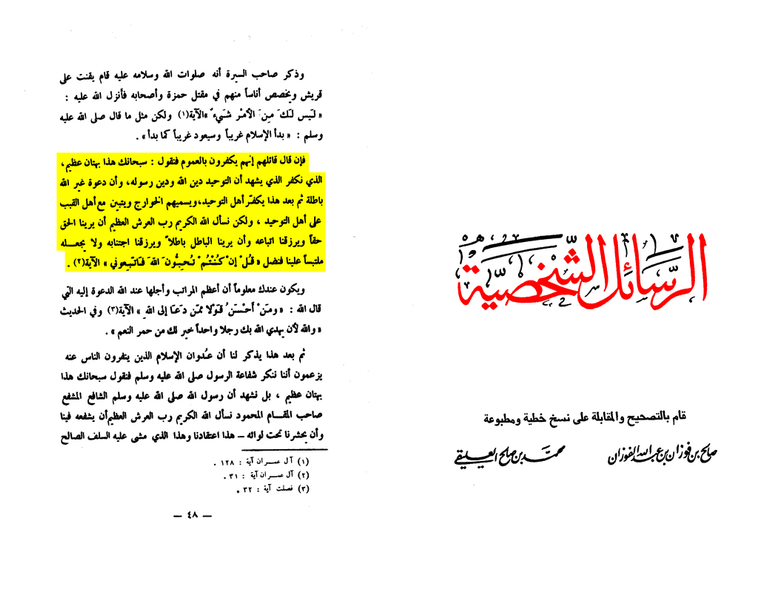 الرسائل الشخصية
قام بالتصحيح والمقابلة على نسخ خطية ومطبوعة
صالح بن فوزان بن عبد الله الفوزان
محمد بن صالح العيلقي
وذكر صاحب السيرة أنه صلوات الله وسلامه عليه قام يقنت على
قريش ويخصص أناساً منهم في مقتل حمزة وأصحابه فأنزل الله عليه :
« لَيْسَ لَكَ مِنَ الأَمْرِ شَيْءٌ » الآية(١) ولكن مثل ما قال صلى الله عليه
وسلم : « بدأ الإسلام غريباً وسيعود غريباً كما بدأ » .
فإن قال قائلهم إنهم يكفرون بالعموم فنقول : سبحانك هذا بهتان عظيم ،
الذي نكفر الذي يشهد أن التوحيد دين الله ودين رسوله، وأن دعوة غير الله
باطلة ثم بعد هذا يكفّر أهل التوحيد،ويسميهم الخوارج ويتبين مع أهل القبب
على أهل التوحيد ، ولكن نسأل الله الكريم رب العرش العظيم أن يرينا الحق
حقاً ويرزقنا اتباعه وأن يرينا الباطل باطلاً ويرزقنا اجتنابه ولا يجعله
ملتبساً علينا فنضل « قُلْ إنْ كُنْتُمْ تُحِبُّونَ اللهَ فَاتَّبِعُوني » الآية(٢) .
ويكون عندك معلوماً أن أعظم المراتب وأجلها عند الله الدعوة إليه التي
قال الله : « ومَنْ أَحْسَنُ قَوْلاً مِّمَّن دَعَا إلى اللهِ » الآية(٣) وفي الحديث
« والله لأن يهدي الله بك رجلا واحداً خير لك من حمر النعم » .
ثم بعد هذا يذكر لنا أن عُدوان الإسلام الذين ينفرون الناس عنه
يزعمون أننا ننكر شفاعة الرسول صلى الله عليه وسلم فنقول سبحانك هذا
بهتان عظيم ، بل نشهد أن رسول الله صلى الله عليه وسلم الشافع المشفع
صاحب المقام المحمود نسأل الله الكريم رب العرش العظيم أن يشفعه فينا
وأن يحشرنا تحت لوائه – هذا اعتقادنا وهذا الذي مشى عليه السلف الصالح
(١) آل عمران آية : ١٢٨ .
(٢) آل عمران آية : ٣١ .
(٣) فصلت آية : ٣٢ .
— ٤٨ —